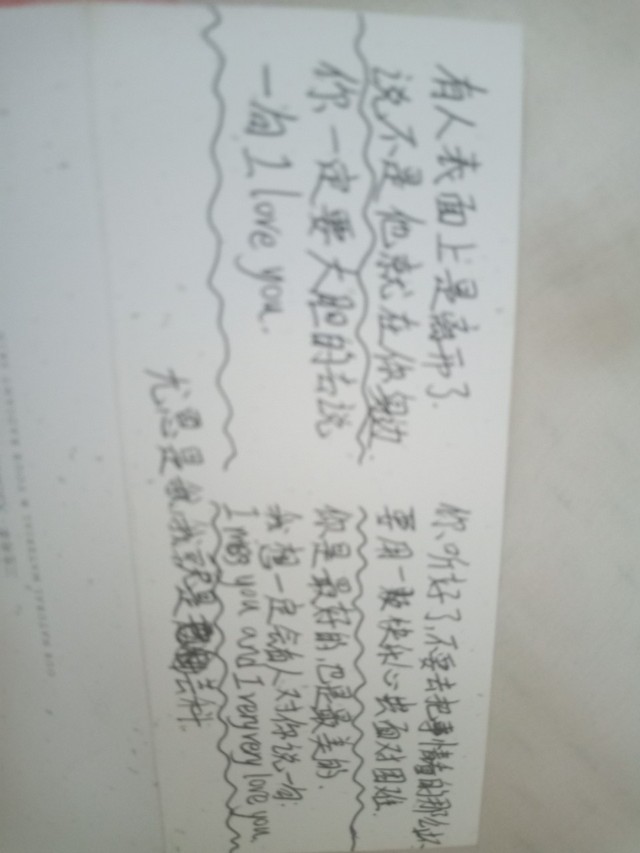 有人表面上是离开了.
说不定他就在你身边.
你一定要大胆的去说
一句 I love you.
你听好了,不要去把事情看的那么坏
要用一颗快乐心去面对困难.
你是最好的,也是最美的.
我想一定会有人对你说一句:
I miss you and I very very love you.
是我,我就是